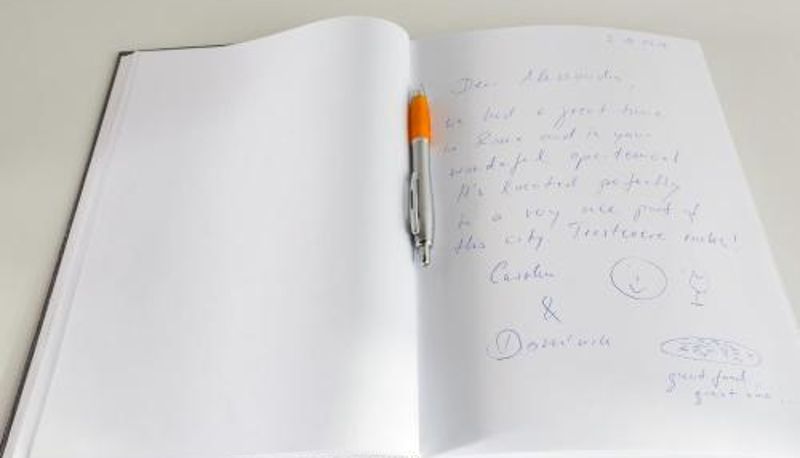 Dear Alessandro,
we had a great time
in Rome and in your
wonderful apartement
It's located perfectly
in a very nice part of
this city. Trastevere rocks!
Carolin
&
Dominik
great food
great wine